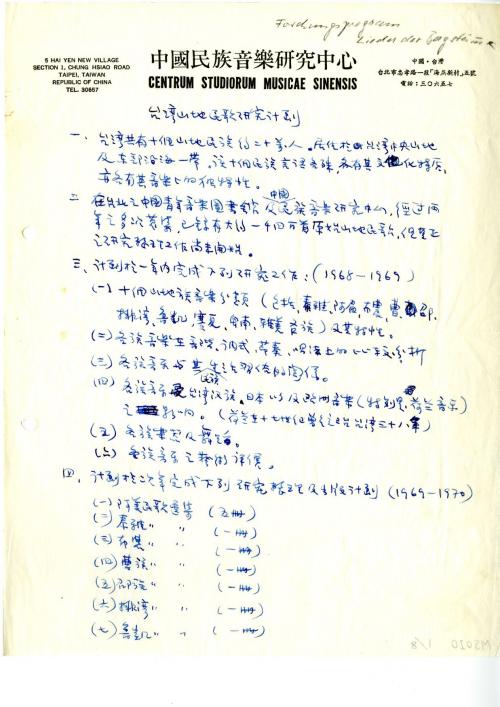 Forschungsprogramm
Lieder der Bergstämme
5 HAI YEN NEW VILLAGE
SECTION 1, CHUNG HSIAO ROAD
TAIPEI, TAIWAN
REPUBLIC OF CHINA
TEL. 30657
中國民族音樂研究中心
CENTRUM STUDIORUM MUSICAE SINENSIS
中國·台灣
台北市忠孝路一段「海燕新村」五號
電話:三〇六五七
台湾山地民歌研究計劃
一、台湾共有十個山地民族約二十萬人。居住於台湾中央山地
及东部沿海一帶。這十個民族言語各殊,各有其文化特质
亦各有其音樂上的独特性。
二、在台北之中國青年音樂图書館及中國民族音樂研究中心,經过两
年之多次蒐集,已錄有大约一千四百首原始山地民歌,但是
之研究整理工作尚未開始。
三、計劃於一年内完成下列研究工作:(1968-1969)
(一)十個山地族音樂分類(包括,泰雅,阿眉,布農,曹,邵,
排湾,魯凱,賽夏,卑南,雅美各族)及其特性。
(二)各族音樂在音階,调式,节奏,唱法上的比較分析
(三)各族音乐与其生活習俗的関係。
(四)各族音乐受台湾汉族,日本以及欧洲音樂(特別是荷兰音乐)
之影响。(荷兰在十七世纪曾占台湾三十八年)
(五)各族樂器及舞蹈。
(六)各族音乐之藝術评價。
四、計劃於二年完成下列研究整理及出版計劃(1969-1970)
(一)阿美民歌選集(五冊)
(二)泰雅〃〃(一冊)
(三)布農〃〃(一冊)
(四)曹族〃〃(一冊)
(五)邵族〃〃(一冊)
(六)排湾〃〃(一冊)
(七)魯凱〃〃(一冊)
M5020 1/8